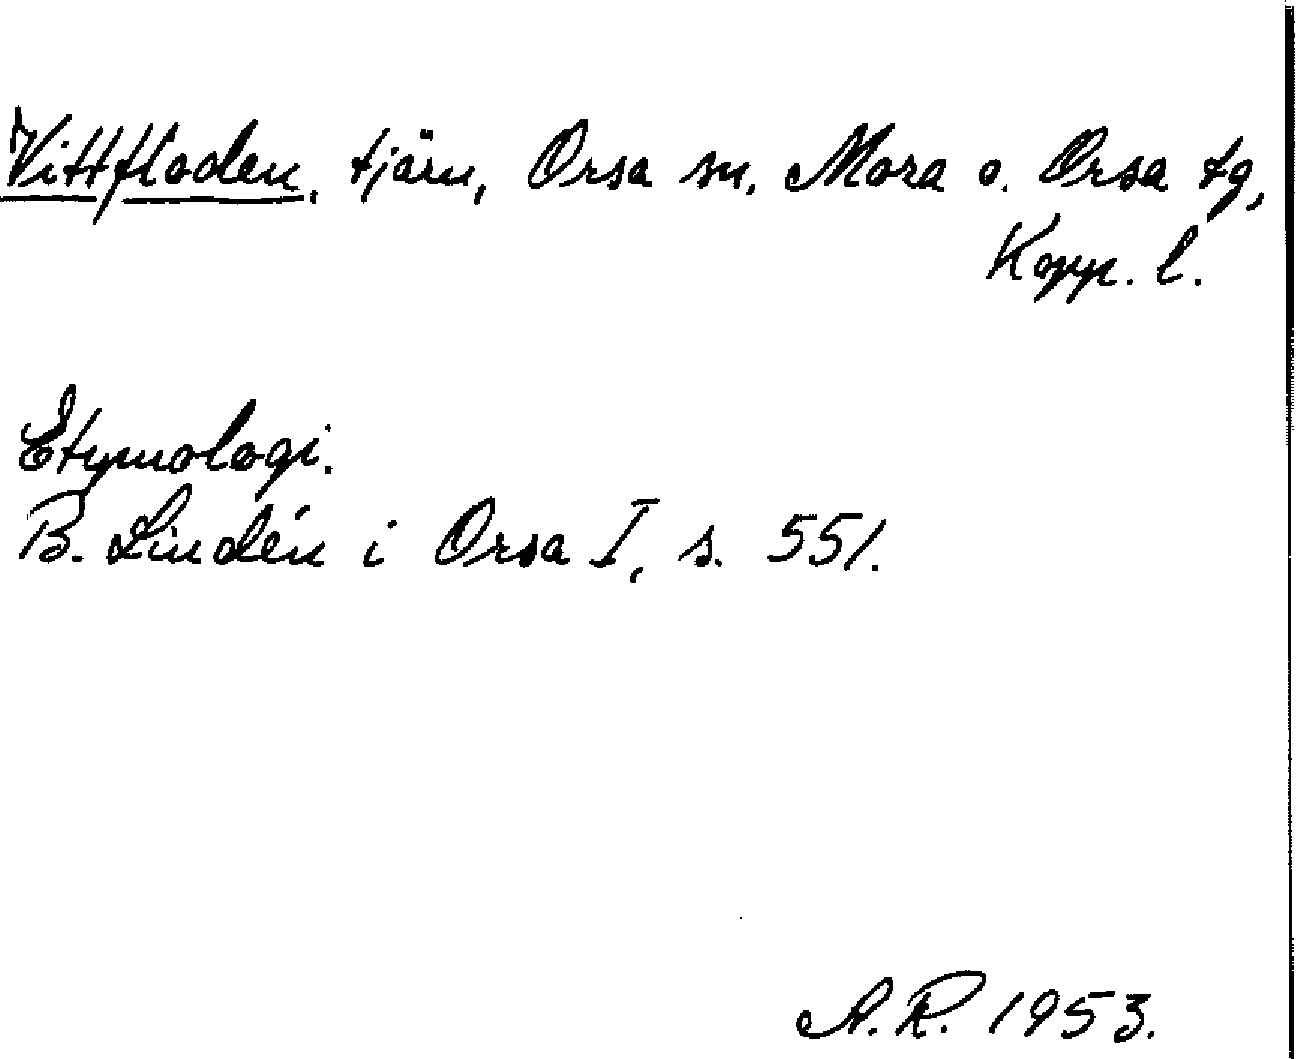 Vittfloden, tjärn, Orsa sn, Mora o. Orsa tg,
Kopp. l.
Etymologi.
B. Lindén i Orsa I, s. 551.
A.R. 1953.